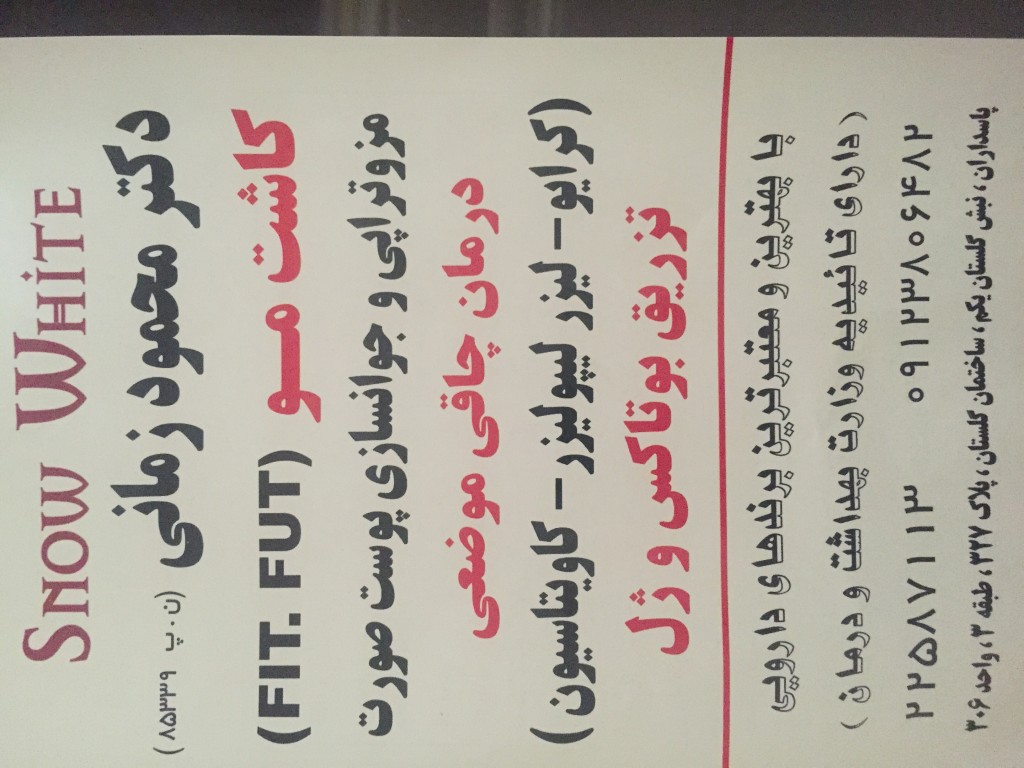 SNOW WHITE
دکتر محمود زمانی
(ن.پ ۸۵۳۳۹)
کاشت مو (FIT. FUT)
مزوتراپی و جوانسازی پوست صورت
درمان چاقی موضعی
(کرایو - لیزر لیپولیزر - کاویتاسیون)
تزریق بوتاکس و ژل
با بهترین و معتبرترین برندهای دارویی
(دارای تائیدیه وزارت بهداشت و درمان)
۲۲۵۸۷۱۱۳ ۰۹۱۲۳۸۰۶۴۸۲
پاسداران، نبش گلستان یکم، ساختمان گلستان، پلاک ۳۲۷، طبقه ۳، واحد ۳۰۶